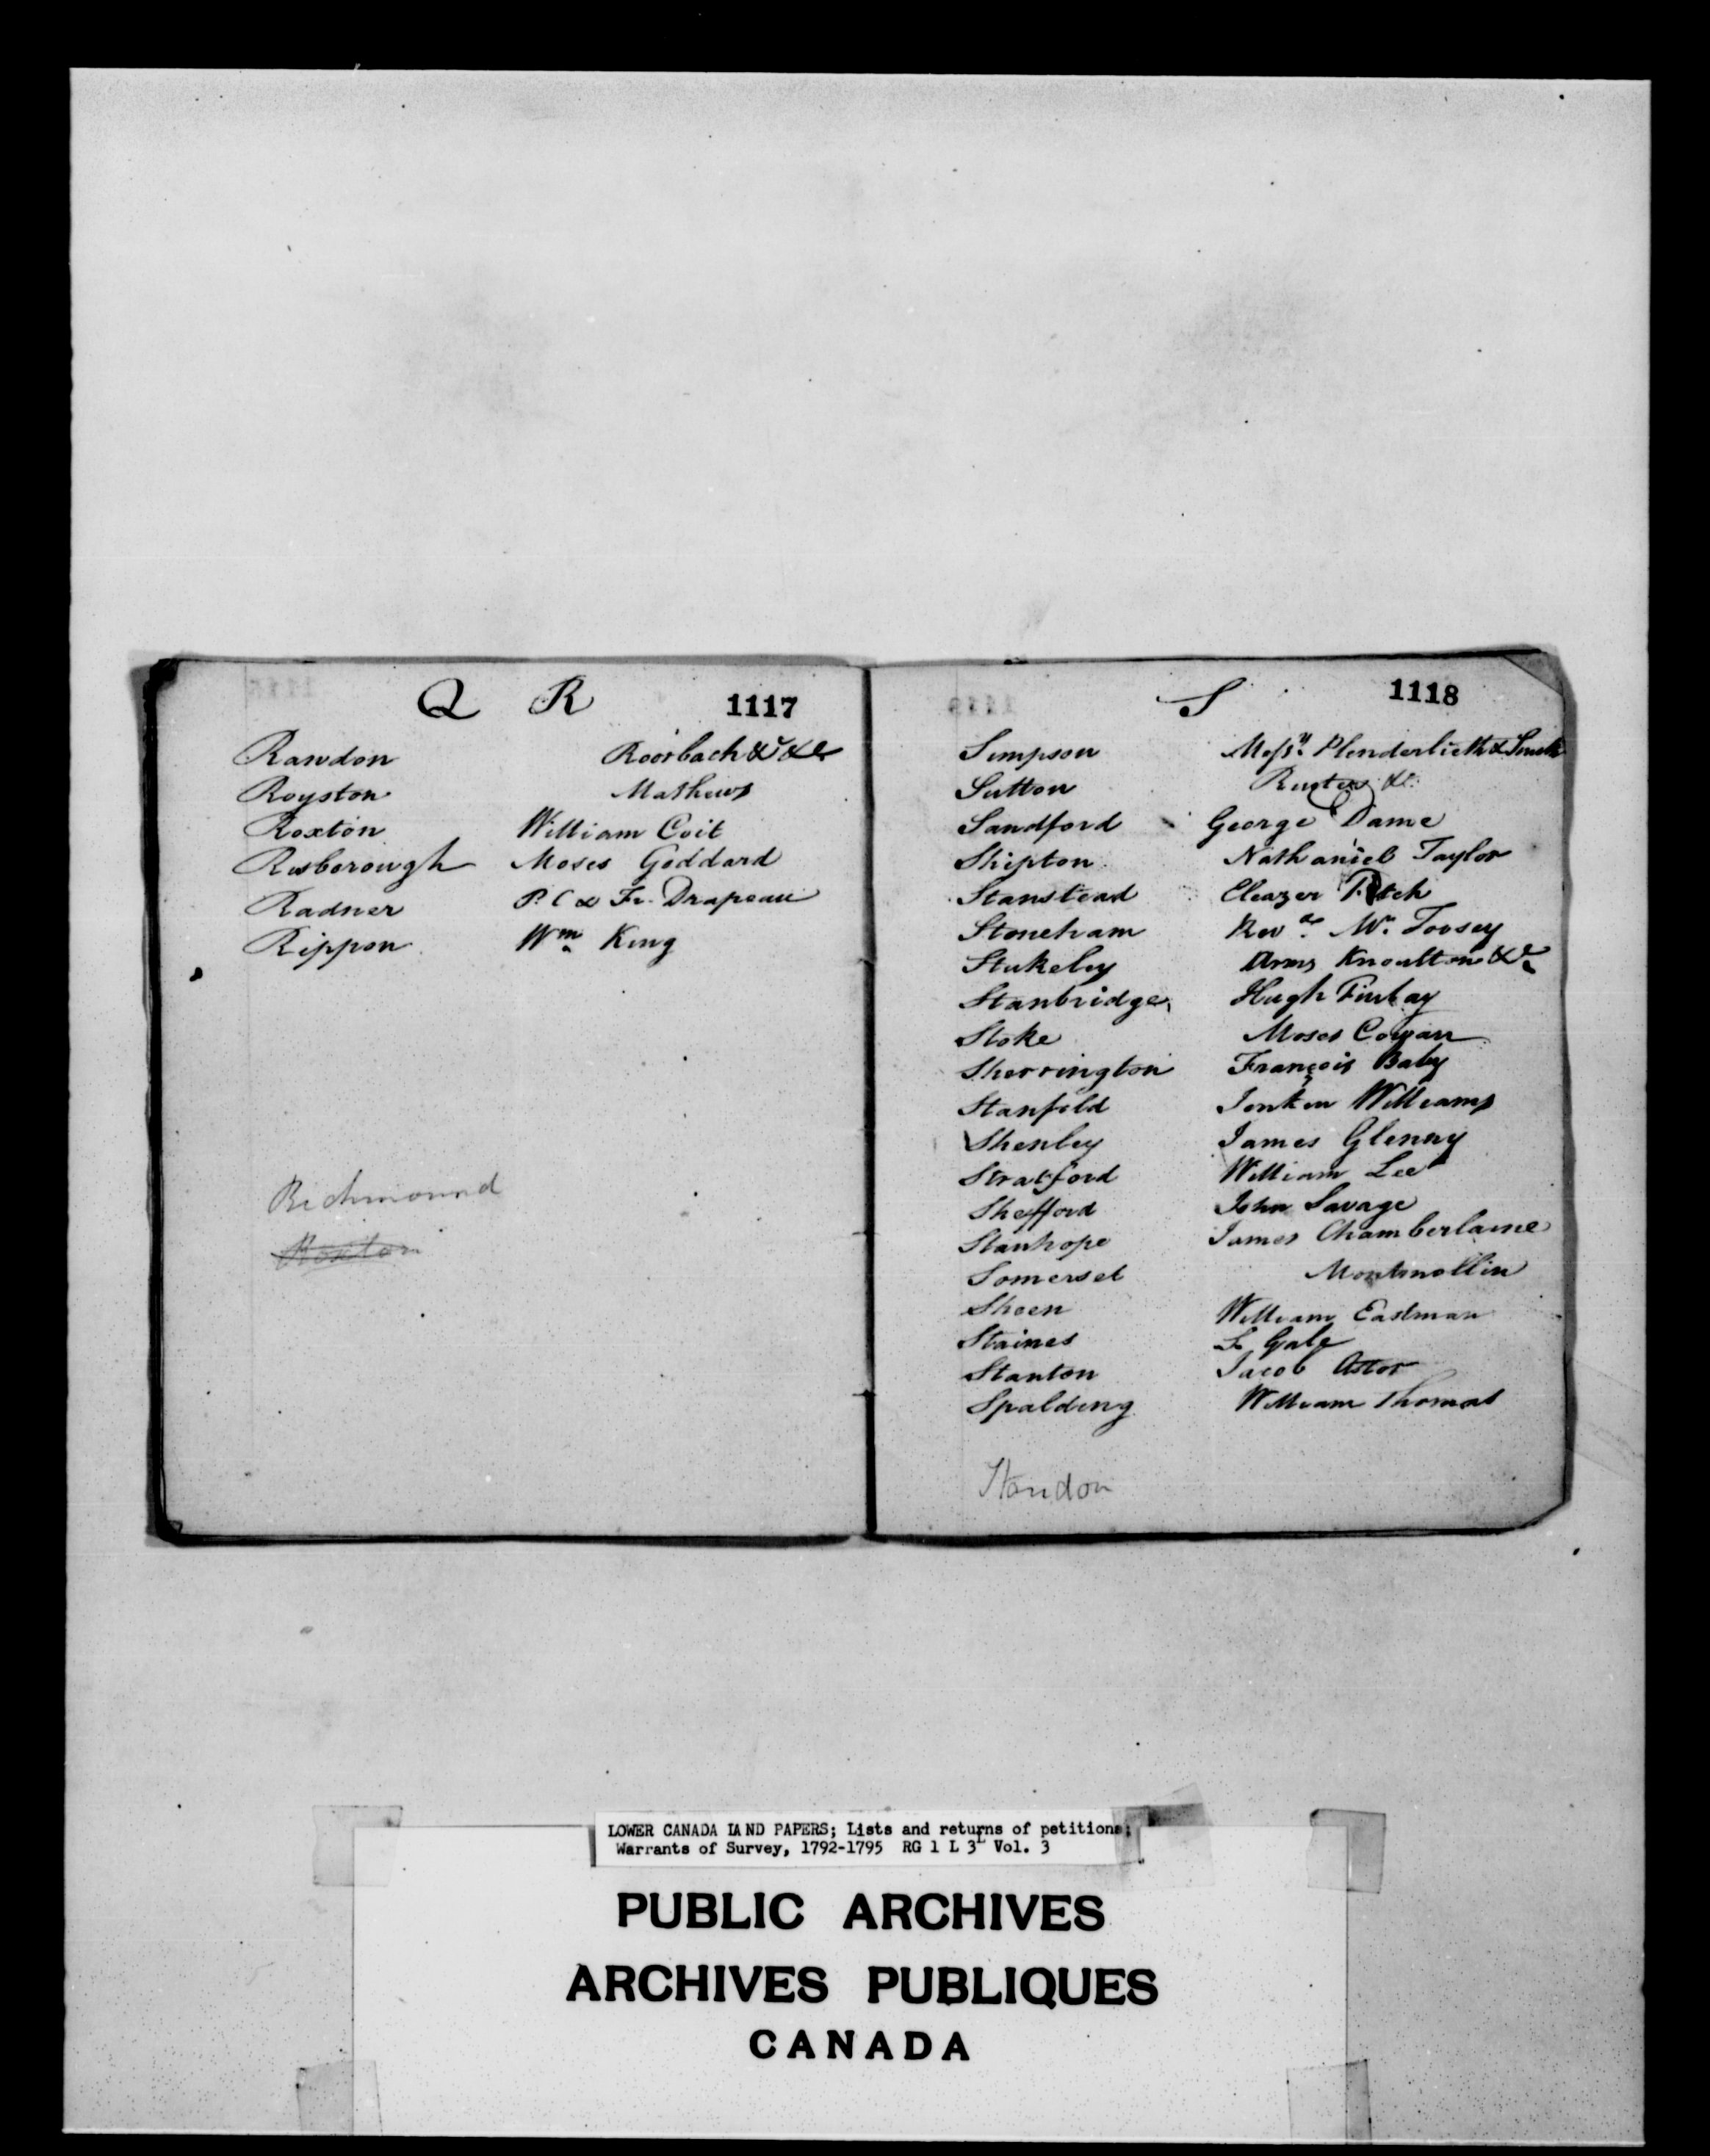 Q R 1117
Rawdon Roorbach &c &c
Royston Mathews
Roxton William Coit
Rusborough Moses Goddard
Radner P. C & Fr. Drapeau
Rippon Wm King
Richmound
Roxton
S 1118
Simpson Messrs Plenderlieth & Smith
Sutton Ruyter &c
Sandford George Dame
Shipton Nathaniel Taylor
Stanstead Eleazer Fitch
Stoneham Revd Mr Toosey
Stukeley Arms Knoulton &c
Stanbridge Hugh Finlay
Stoke Moses Cowan
Sherrington François Baby
Stanfold Jenkin Williams
Shenley James Glenny
Stratford William Lee
Shefford John Savage
Stanhope James Chamberlaine
Somerset Montmollin
Sheen William Eastman
Staines S. Gale
Stanton Jacob Astor
Spalding William Thomas
Standon
LOWER CANADA LAND PAPERS; Lists and returns of petitions;
Warrants of Survey, 1792-1795 RG 1 L 3L Vol. 3
PUBLIC ARCHIVES
ARCHIVES PUBLIQUES
CANADA